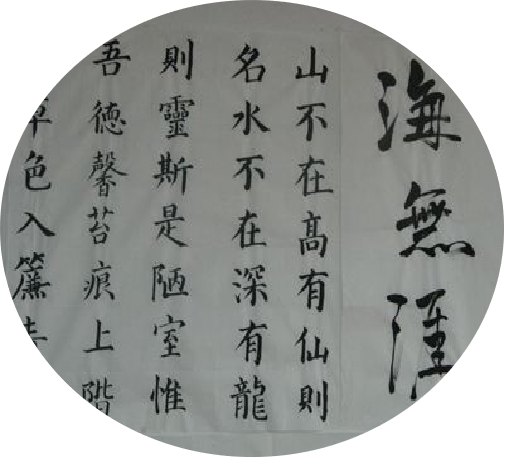 海無涯
山不在高有仙則
名水不在深有龍
則靈斯是陋室惟
吾德馨苔痕上階
草色入簾青